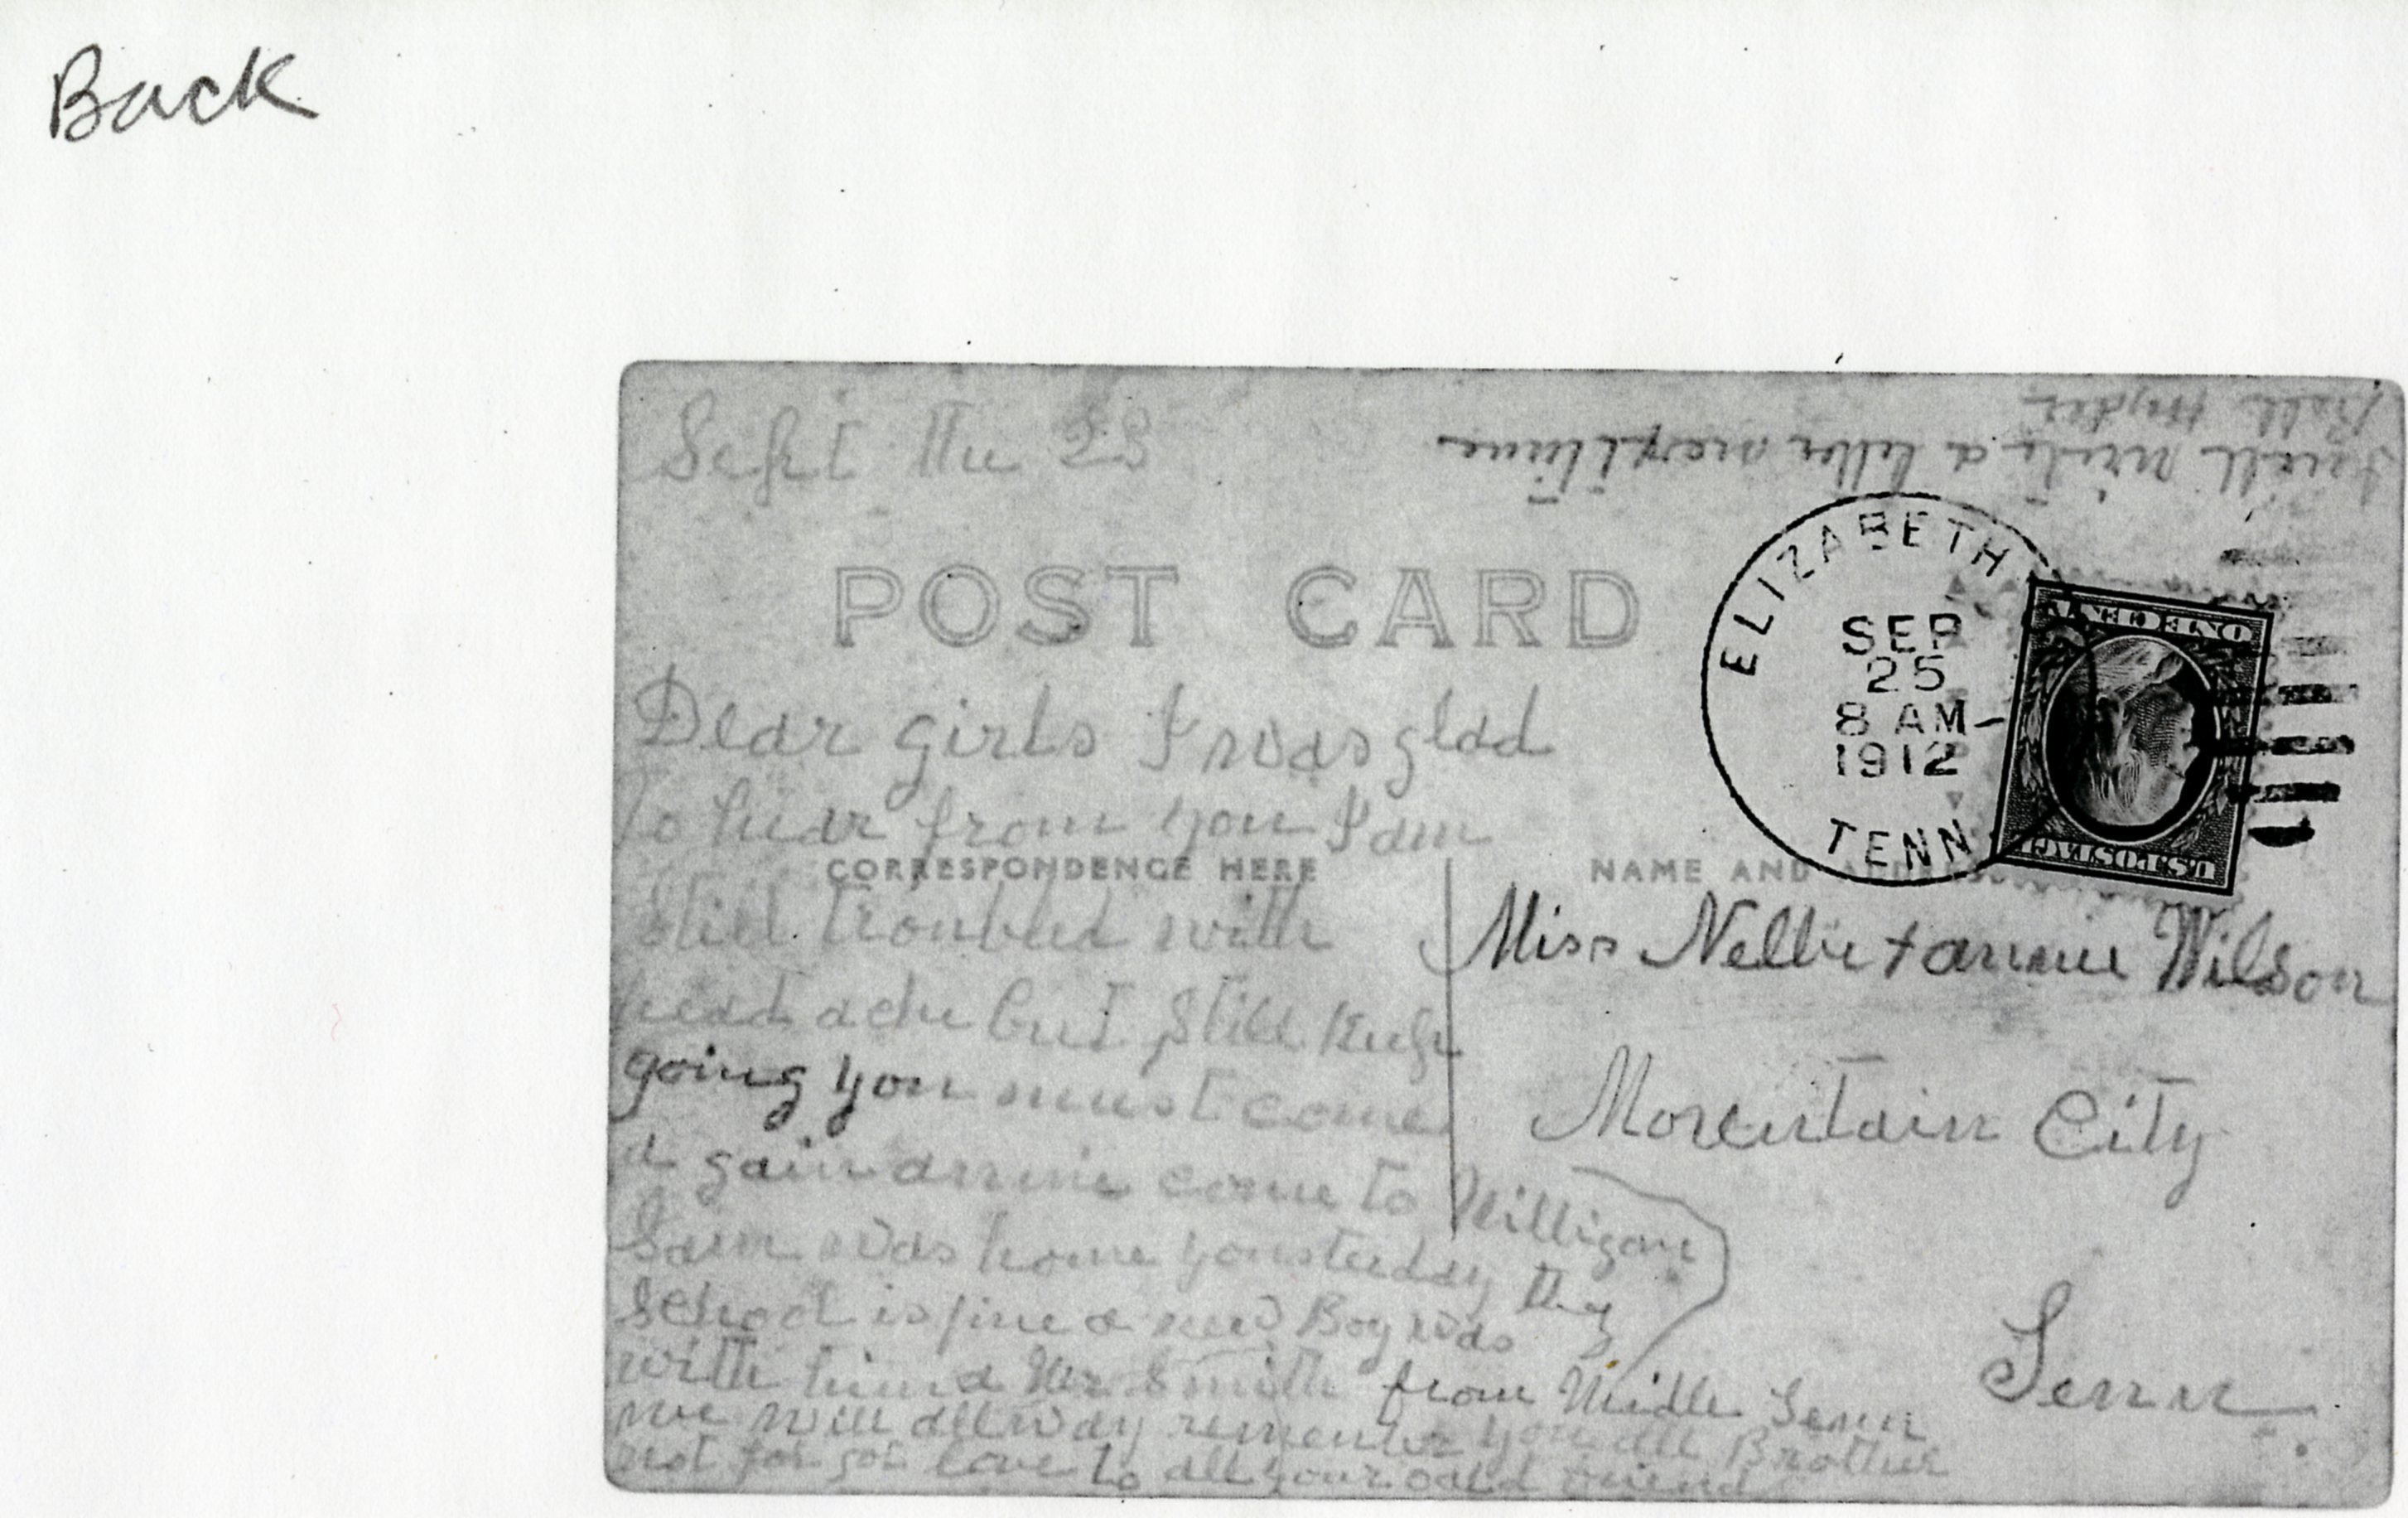 Back
Sept the 23
I will write a letter next time
Bell Hyder
POST CARD
ELIZABETH
SEP
25
8 AM
1912
TENN
ONE CENT
U.S. POSTAGE
Dear girls I was glad
to hear from you I am
CORRESPONDENCE HERE
NAME AND ADDRE
Still troubled with
head ache but Still Keep
going you must come
a gain annie come to Milligan
Sam was home yousteeday they
School is fine a new Boy was
with him a Mr Smith from Midle Tenn
we will allway remember you all Brother
not for got love to all your oald friend
Miss Nellie + annie Wilson
Mountain City
Tenn.